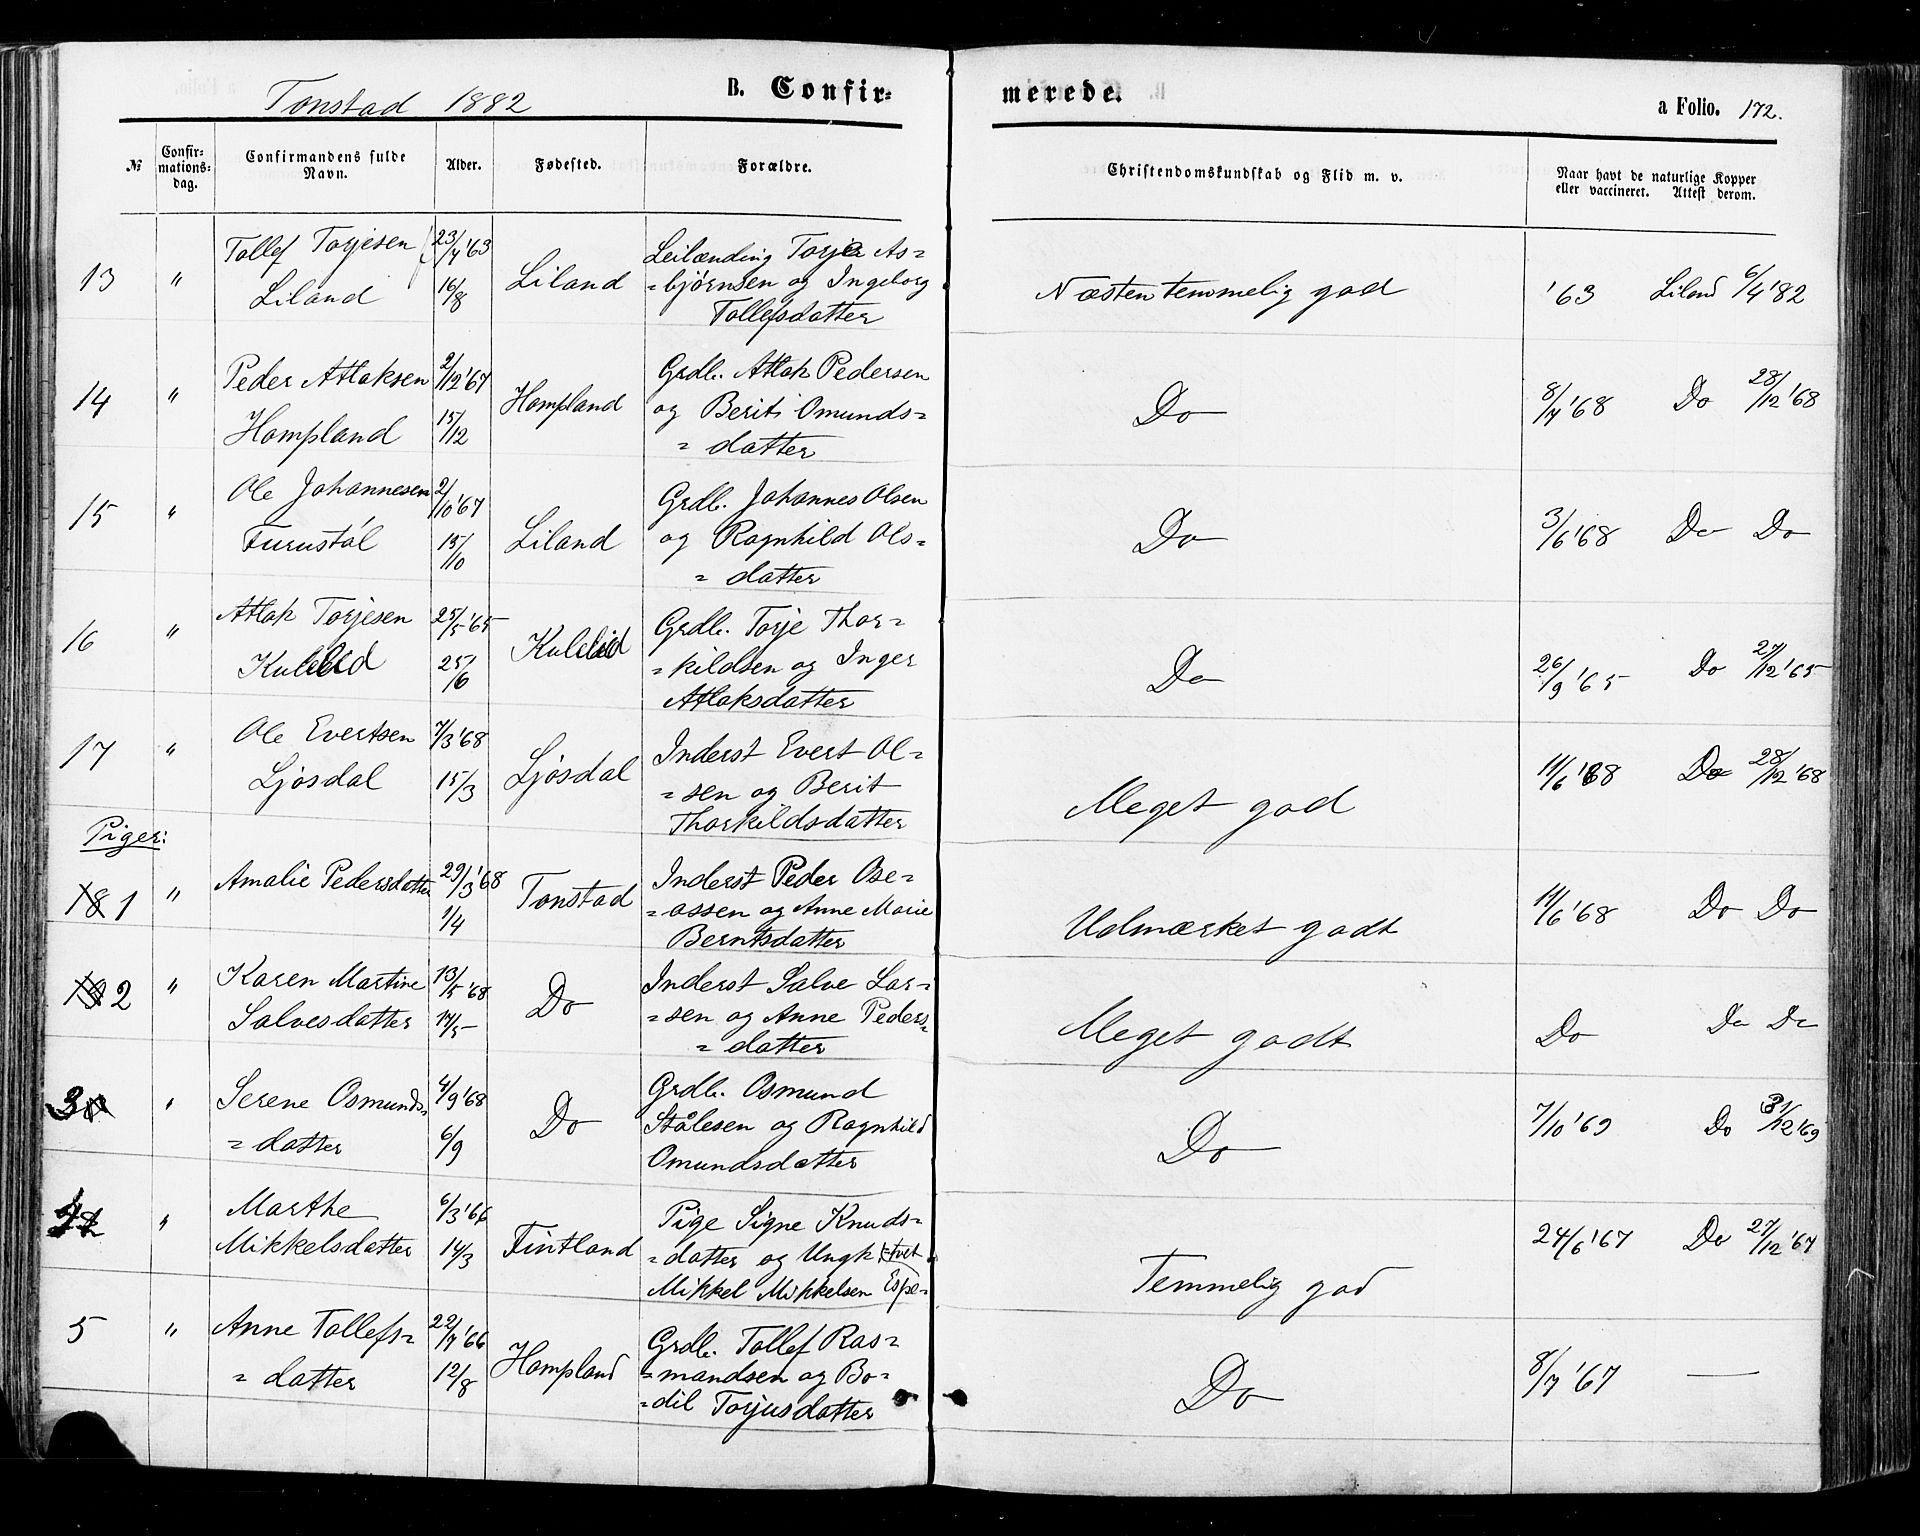 Tonstad 1882
B. Confir-
merede.
a Folio. 172.
№
Confir-
mations-
dag.
Confirmandens fulde
Navn.
Alder.
Fødested.
Forældre.
Christendomskundskab og Flid m. v.
Naar havt de naturlige Kopper
eller vaccineret. Attest derom.
13 " Tollef Torjesen 23/7 '63 Leilænding Torje As=
Liland 16/8 Liland =bjørnsen og Ingeborg Næsten temmelig god '63 Liland 6/4 '82
Tollefsdatter
14 " Peder Atlaksen 2/12 '67 Grdb. Atlak Pedersen 8/7 '68 Do 28/12 '68
Hompland 15/12 Hompland og Berit Omunds= Do
= datter
15 " Ole Johannesen 2/10 '67 Grdb. Johannes Olsen
Furustøl 15/10 Liland og Ragnhild Ols= Do 3/6 '68 Do Do
= datter
16 " Atlak Torjesen 25/5 '65 Grdb. Torje Thor=
Kulelid 25/6 Kulelid =kildsen og Inger Do 26/9 '65 Do 27/12 '65
Atlaksdatter
17 " Ole Evertsen 7/3 '68 Inderst Evert Ol= 11/6 '68 Do 28/12 '68
Ljosdal 15/3 Ljosdal =sen og Berit Meget god
Thorkildsdatter
Piger:
18 1 " Amalie Pedersdatter 29/3 '68 Tonstad Inderst Peder Ose= 11/6 '68 Do Do
1/4 =assen og Anne Marie Udmærket godt
Berntsdatter
19 2 " Karen Martine 13/5 '68 Do Inderst Salve Lar=
Salvesdatter 14/5 =sen og Anne Peders= Meget godt Do Do Do
= datter
3 " Serene Osmunds= 4/9 '68 Do Grdb. Osmund 7/10 '69 Do 31/12 '69
= datter 6/9 Stålesen og Ragnhild Do
Omundsdatter
4 " Marthe 6/3 '66 Pige Signe Knuds= 24/6 '67 Do 27/12 '67
Mikkelsdatter 14/3 Fintland =datter og Ungk. =tvet
Mikkel Mikkelsen Espe= Temmelig god
5 " Anne Tollefs= 22/7 '66 Grdb. Tollef Ras=
= datter 12/8 Hompland =mandsen og Bo= Do 8/7 '67 —
=dil Torjusdatter